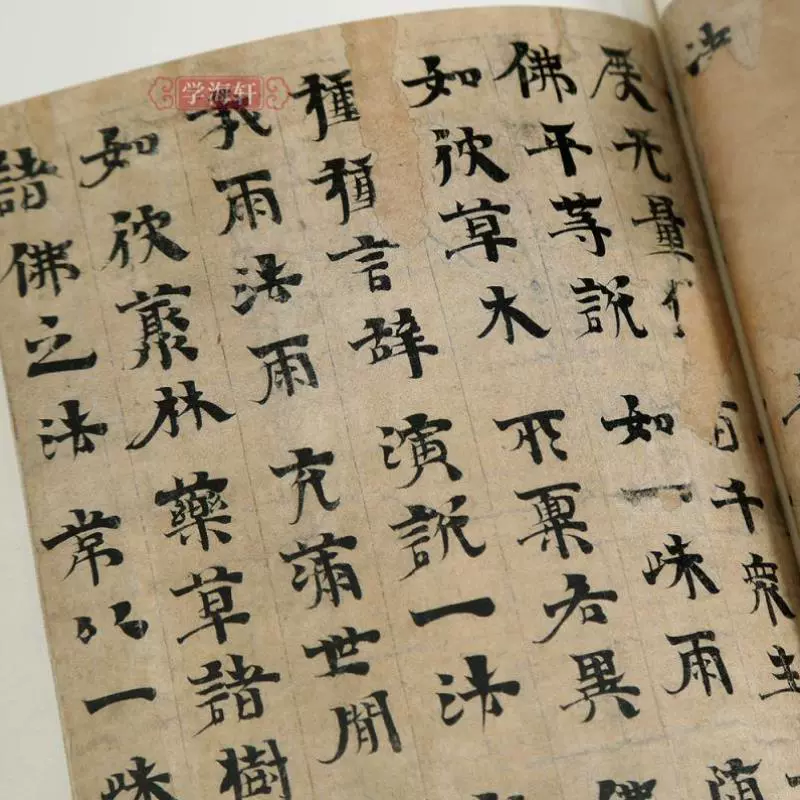 学海轩
度无量 百千衆生
佛平等説 如一味雨 随
如彼草木 所稟各異 佛
種種言辞 演説一法
我雨法雨 充滿世間
如彼叢林 藥草諸樹
諸佛之法 常以一味